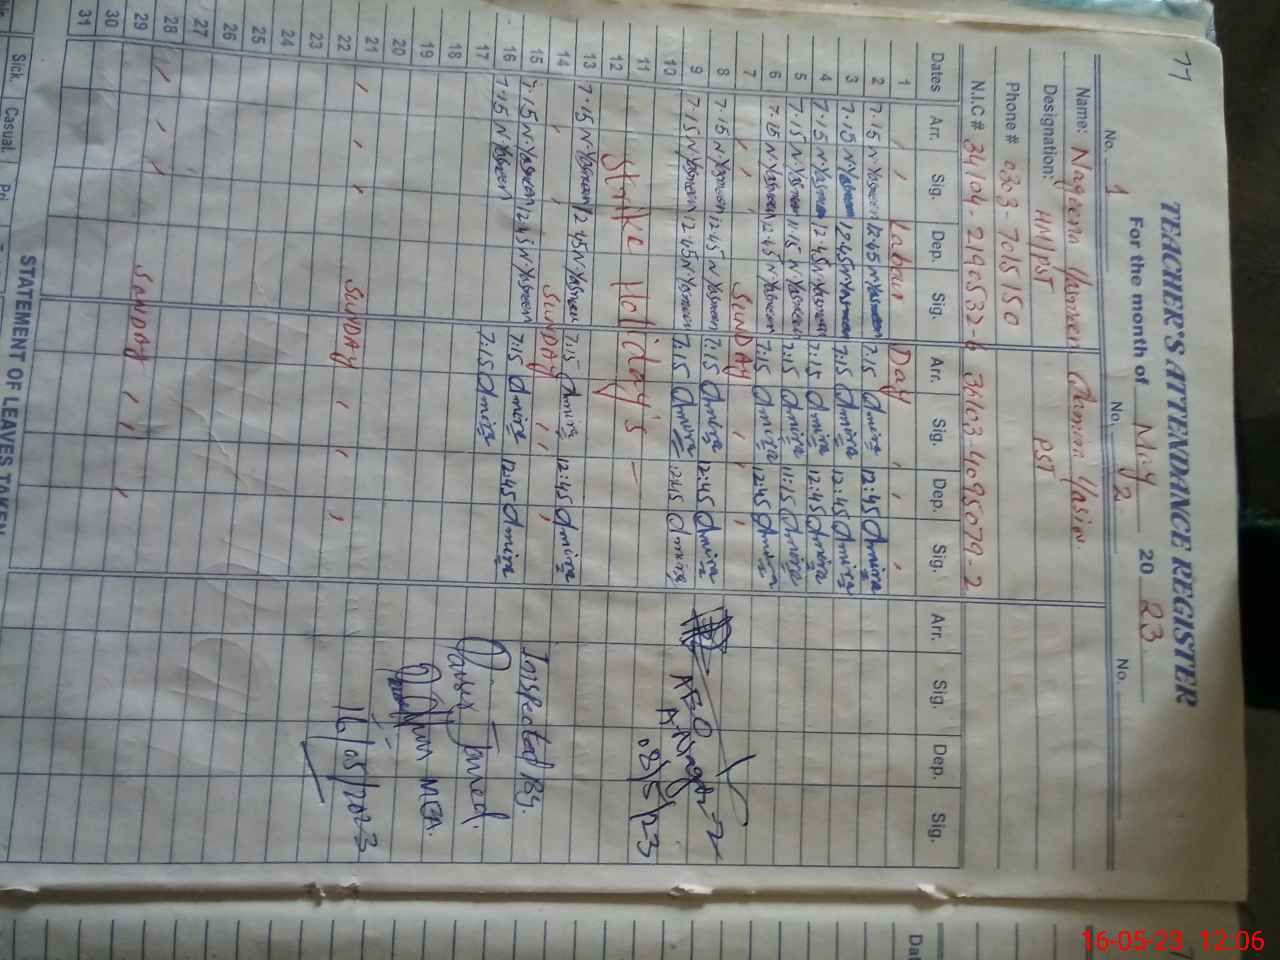 77
TEACHER'S ATTENDANCE REGISTER
For the month of May 2023
No. 1 No. 2 No.
Name: Nageena Yasmeen Amina Yasin.
Designation: HM/PST PST
Phone # 0303-7015150
N.I.C # 34104-2190532-6 34103-4095079-2
Dates Arr. Sig. Dep. Sig. Arr. Sig. Dep. Sig. Arr. Sig. Dep. Sig.
1 Labour Day
2 7.15 N.Yasmeen 12.45 N.Yasmeen 7.15 Amina 12:45 Amina
3 7.15 N.Yasmeen 12.45 N.Yasmeen 7.15 Amina 12:45 Amina
4 7.15 N.Yasmeen 12.45 N.Yasmeen 7:15 Amina 12:45 Amina
5 7.15 N.Yasmeen 11.15 N.Yasmeen 7:15 Amina 11:15 Amina
6 7.15 N.Yasmeen 12.45 N.Yasmeen 7:15 Amina 12:45 Amina
7 SUNDAY
8 7.15 N.Yasmeen 12.45 N.Yasmeen 7.15 Amina 12:45 Amina
9 7.15 N.Yasmeen 12.45 N.Yasmeen 7.15 Amina 12:45 Amina
AEO
08/5/23
10
11 Strike Holiday's
12
13 7.15 N.Yasmeen 12.45 N.Yasmeen 7:15 Amina 12:45 Amina
14 SUNDAY
15 7.15 N.Yasmeen 12.45 N.Yasmeen 7:15 Amina 12:45 Amina
16 7.15 N.Yasmeen 7.15 Amina
Inspected By.
MEA.
16/05/2023
17
18
19
20
21 SUNDAY
22
23
24
25
26
27
28 SUNDAY
29
30
31
STATEMENT OF LEAVES TAKEN
Sick. Casual. Pri
Dat
16-05-23 12:06